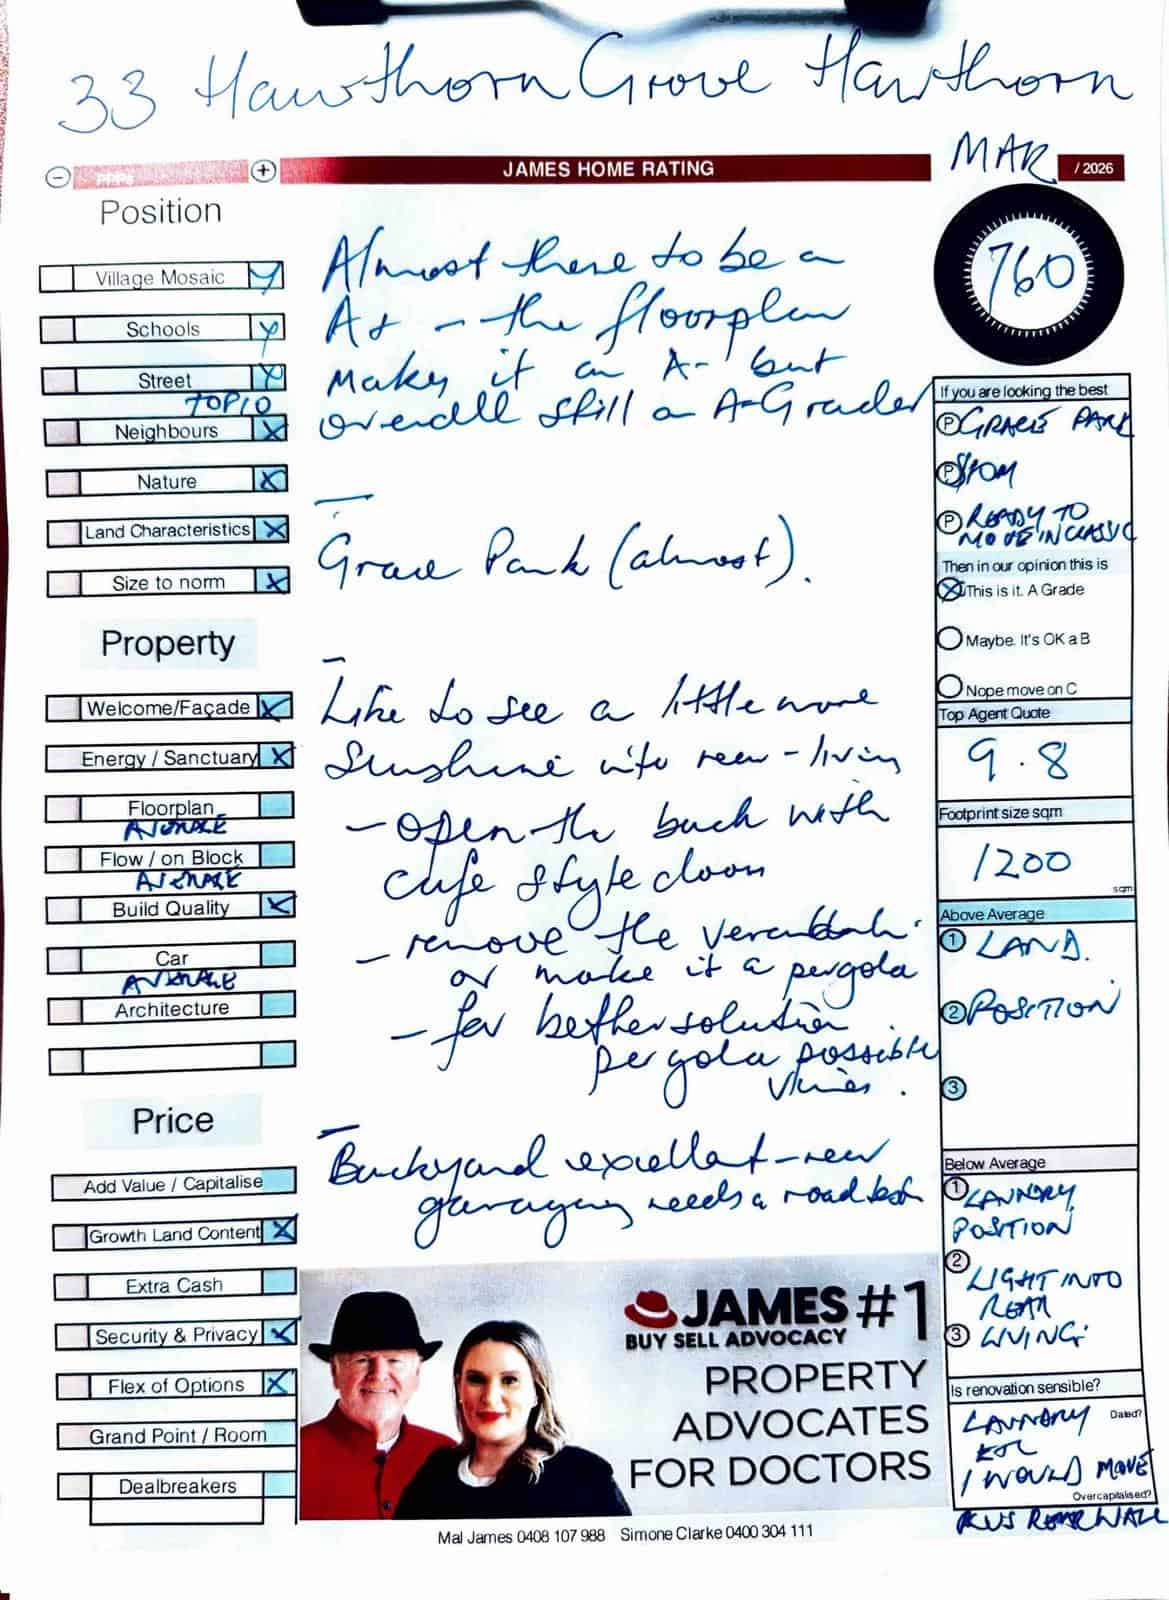 33 Hawthorn Grove Hawthorn
JAMES HOME RATING
MAR / 2026
Position
Village Mosaic
Schools
Street
TOP 10
Neighbours
Nature
Land Characteristics
Size to norm
Property
Welcome/Façade
Energy / Sanctuary
Floorplan
AVERAGE
Flow / on Block
AVERAGE
Build Quality
Car
AVERAGE
Architecture
Price
Add Value / Capitalise
Growth Land Content
Extra Cash
Security & Privacy
Flex of Options
Grand Point / Room
Dealbreakers
Almost there to be a
A+ - the floorplan
makes it an A- but
overall still a A-Grader
Grace Park (almost).
Like to see a little more
Sunshine into rear-living
- open the back with
cafe style doors
- remove the verandah
or make it a pergola
- far better solution
pergola possible
vines.
Backyard excellent - rear
garaging needs a road test
760
If you are looking the best
P GRACE PARK
P $10M
P READY TO
MOVE IN CLASSIC
Then in our opinion this is
This is it. A Grade
Maybe. It's OK a B
Nope move on C
Top Agent Quote
9.8
Footprint size sqm
1200
sqm
Above Average
1 LAND.
2 POSITION
3
Below Average
1 LAUNDRY
POSITION
2
LIGHT INTO
REAR
3 LIVING
Is renovation sensible?
LAUNDRY
Dated?
I WOULD MOVE
Overcapitalised?
REAR WALL
JAMES #1
BUY SELL ADVOCACY
PROPERTY
ADVOCATES
FOR DOCTORS
Mal James 0408 107 988 Simone Clarke 0400 304 111